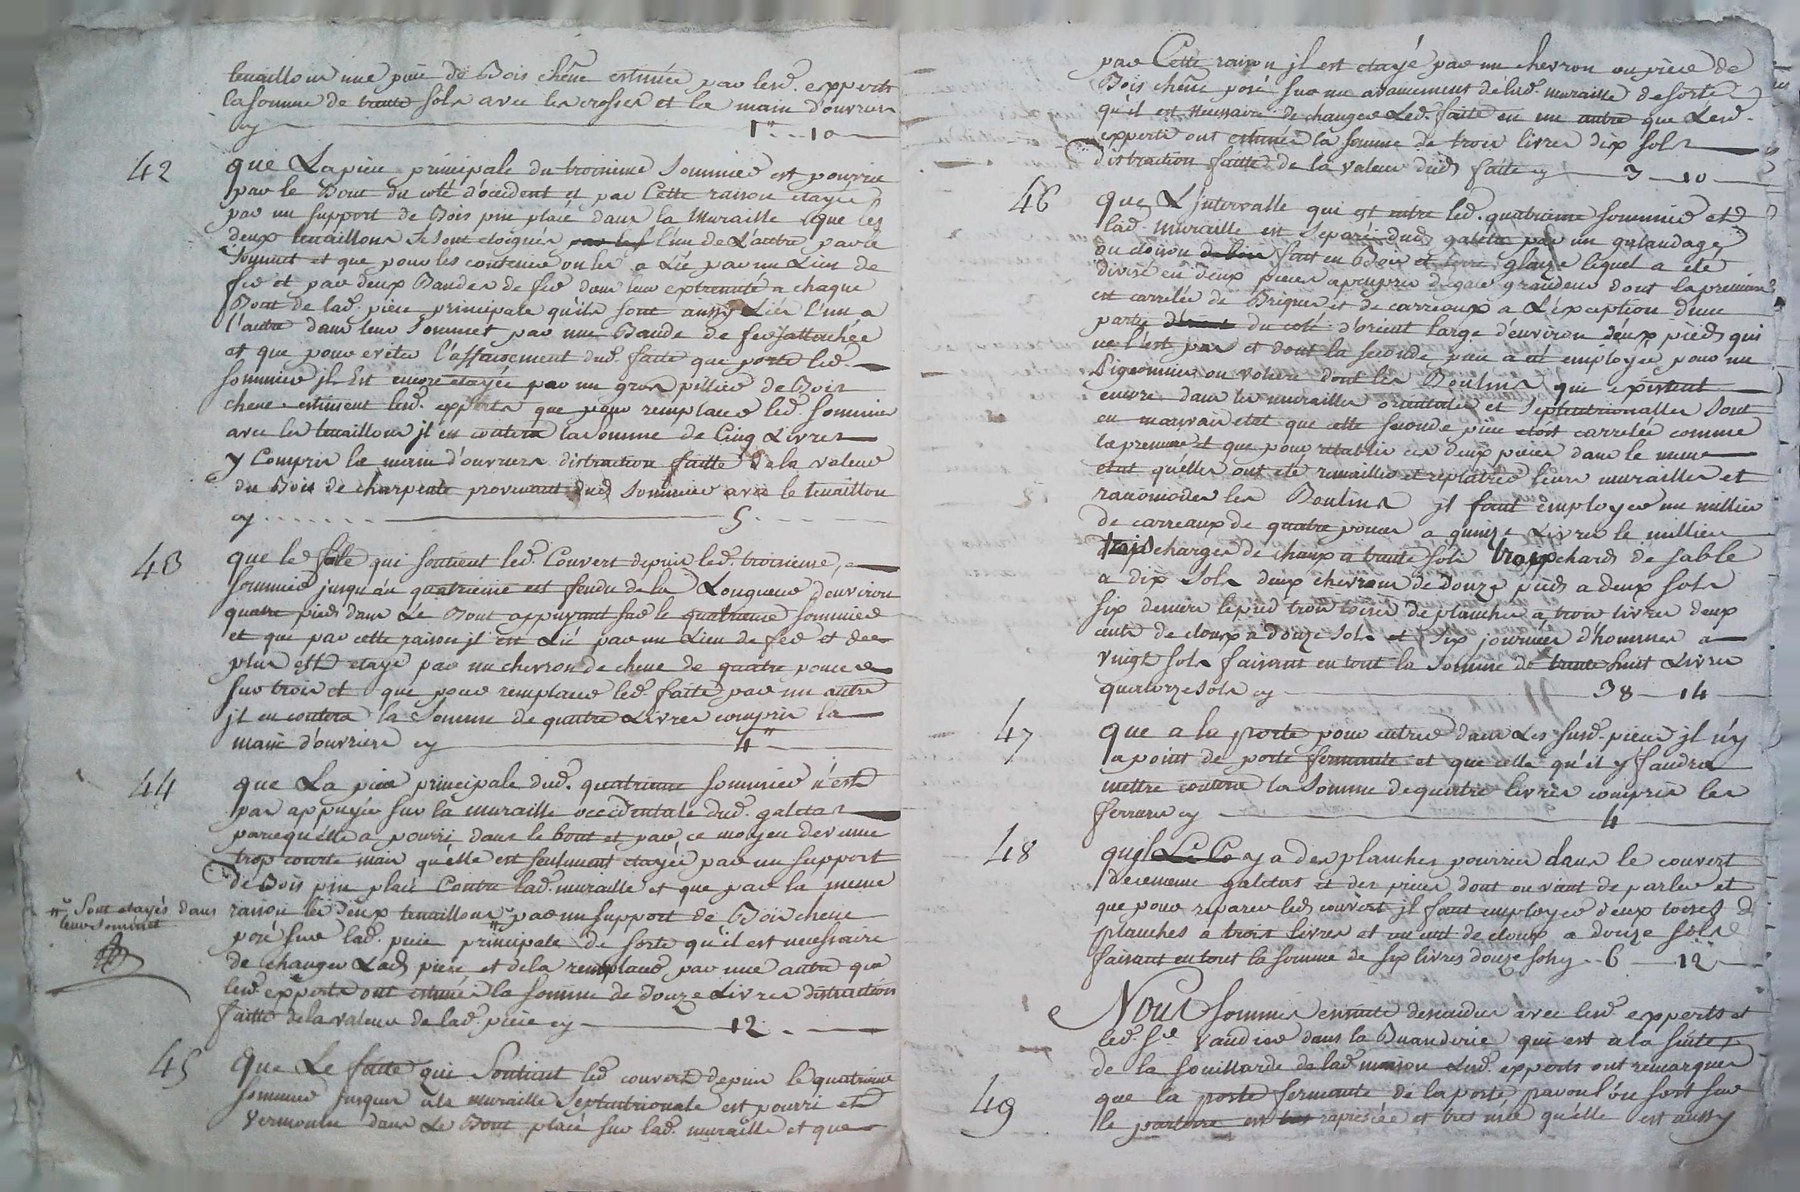 tenaillon une piece de Bois chêne estimée par lesd. experts
la somme de trente sols avec les crosses et la main d'ouvriers
cy 1 " 10
42 que La piece principale du troisieme Sommier est pourrie
par le Bout du coté d'occident et par Cette raison etayée
par un support de Bois pin placé dans la Muraille que les
deux tenaillons Se sont eloignés par les l'un de L'autre par le
Sommet et que pour les contenir on les a Lié par un Lien de
fer et par deux Bandes de fer dans leur extremité a chaque
Bout de lad. piece principale qu'ils sont aussy Liés L'un a
l'autre dans leur Sommet par une Bande de fer attachée
et que pour eviter l'affaissement dud. faite que porte led.
Sommier jl Est encore etayée par un gros pillier de Bois
chene estiment lesd. experts que pour remplacer led. Sommier
avec les tenaillons jl en coutera la Somme de Cinq Livres
y Compris la main d'ouvriers distraction faitte de la valeur
du Bois de charpente provenant dud. Sommier avec le tenaillon
cy 5
43 que le faite qui Soutient led. Couvert depuis led. troisieme
Sommier jusqu'au quatrieme est fendu de la Longueur d'environ
quatre pieds dans Le Bout appuyant sur le quatrieme Sommier
et que par cette raison jl est Lié par un Lien de fer et de
plus est etayé par un chevron de chene de quatre pouces
sur trois et que pour remplacer led. faite par un autre
jl en coutera la Somme de quatre Livres compris la
main d'ouvriers cy 4 "
44 que La piece principale dud. quatrieme Sommier n'est
pas appuyée sur la muraille occidentale dud. galetas
parcequ'elle a pourri dans le bout et par ce moyen devenue
trop courte mais qu'elle est seulement etayée par un support
de Bois pin placé Contre lad. muraille et que par la meme
raison les deux tenaillons " par un support de Bois chene
" Sont etayés dans
leur Sommet
posé sur lad. piece principale de sorte qu'il est necessaire
de changer Lad. piece et de la remplacer par une autre que
lesd. experts ont estimée la Somme de Douze Livres distraction
faitte de la valeur de lad. piece cy 12
45 Que Le faite qui Soutient led. couvert depuis le quatrieme
Sommier jusques a la muraille Septentrionale est pourri et
Vermoulu dans Le Bout placé sur lad. muraille et que
par Cette raison jl est etayé par un chevron ou piece de
Bois chêne posé sur un avancement de lad. muraille de sorte
qu'il est necessaire de changer Led. faite en un autre que Lesd.
experts ont estimée la somme de trois livres dix sols
distraction faitte de la valeur dud. faite cy 3 10
46 Que L'intervalle qui est entre led. quatrieme Sommier et
lad. Muraille est separé dud. galetas par un galandage
ou cloison de bois fait en Bois et terre glaise lequel a eté
divisé en deux pieces a peu pres d'egale grandeur dont la premiere
est carrelée de Briques et de carreaux a L'exception d'une
partie du coté d'orient large d'environ deux pieds qui
ne l'est pas et dont la seconde piece a eté employée pour un
Pigeonnier ou voliere dont les Boulins qui existent
encore dans les murailles orientales et Septentrionalles Sont
en mauvais etat que cette seconde piece est carrelée comme
la premiere et que pour retablir ces deux pieces dans le meme
etat qu'elles ont eté recrepies et replatrer leurs murailles et
racomoder les Boulins jl faut employer un millier
de carreaux de quatre pouces a quinze Livres le millier
trois charges de chaux a trente sols trois chards de sable
a dix Sols deux chevrons de douze pieds a deux sols
six deniers le pied trois toises de planches a trois livres deux
cents de cloux a Douze sols et six journées d'hommes a
vingt sols faisant en tout la Somme de trente huit Livres
quatorze sols cy 38 14
47 Que a la porte pour entrer dans Les susd. pieces jl n'y
a point de porte fermante et que celle qu'il y faudra
mettre coutera la Somme de quatre livres compris les
ferrures cy 4
48 qu'il Le Co y a des planches pourries dans le couvert
de ce meme galetas et des pieces dont on vient de parler et
que pour reparer led. couvert jl faut employer deux toises de
planches a trois livres et un cent de cloux a douze sols
faisant en tout la somme de six livres douze sols cy 6 12
Nous Sommes ensuite descendus avec lesd. experts et
led. Sr. Vaudier dans la Buanderie qui est a la suite
de la souillarde de lad. maison Lesd. experts ont remarqué
49 que la porte fermante de la porte par ou l'on sort sur
le parterre est rapiecée et tres usée qu'elle est aussy